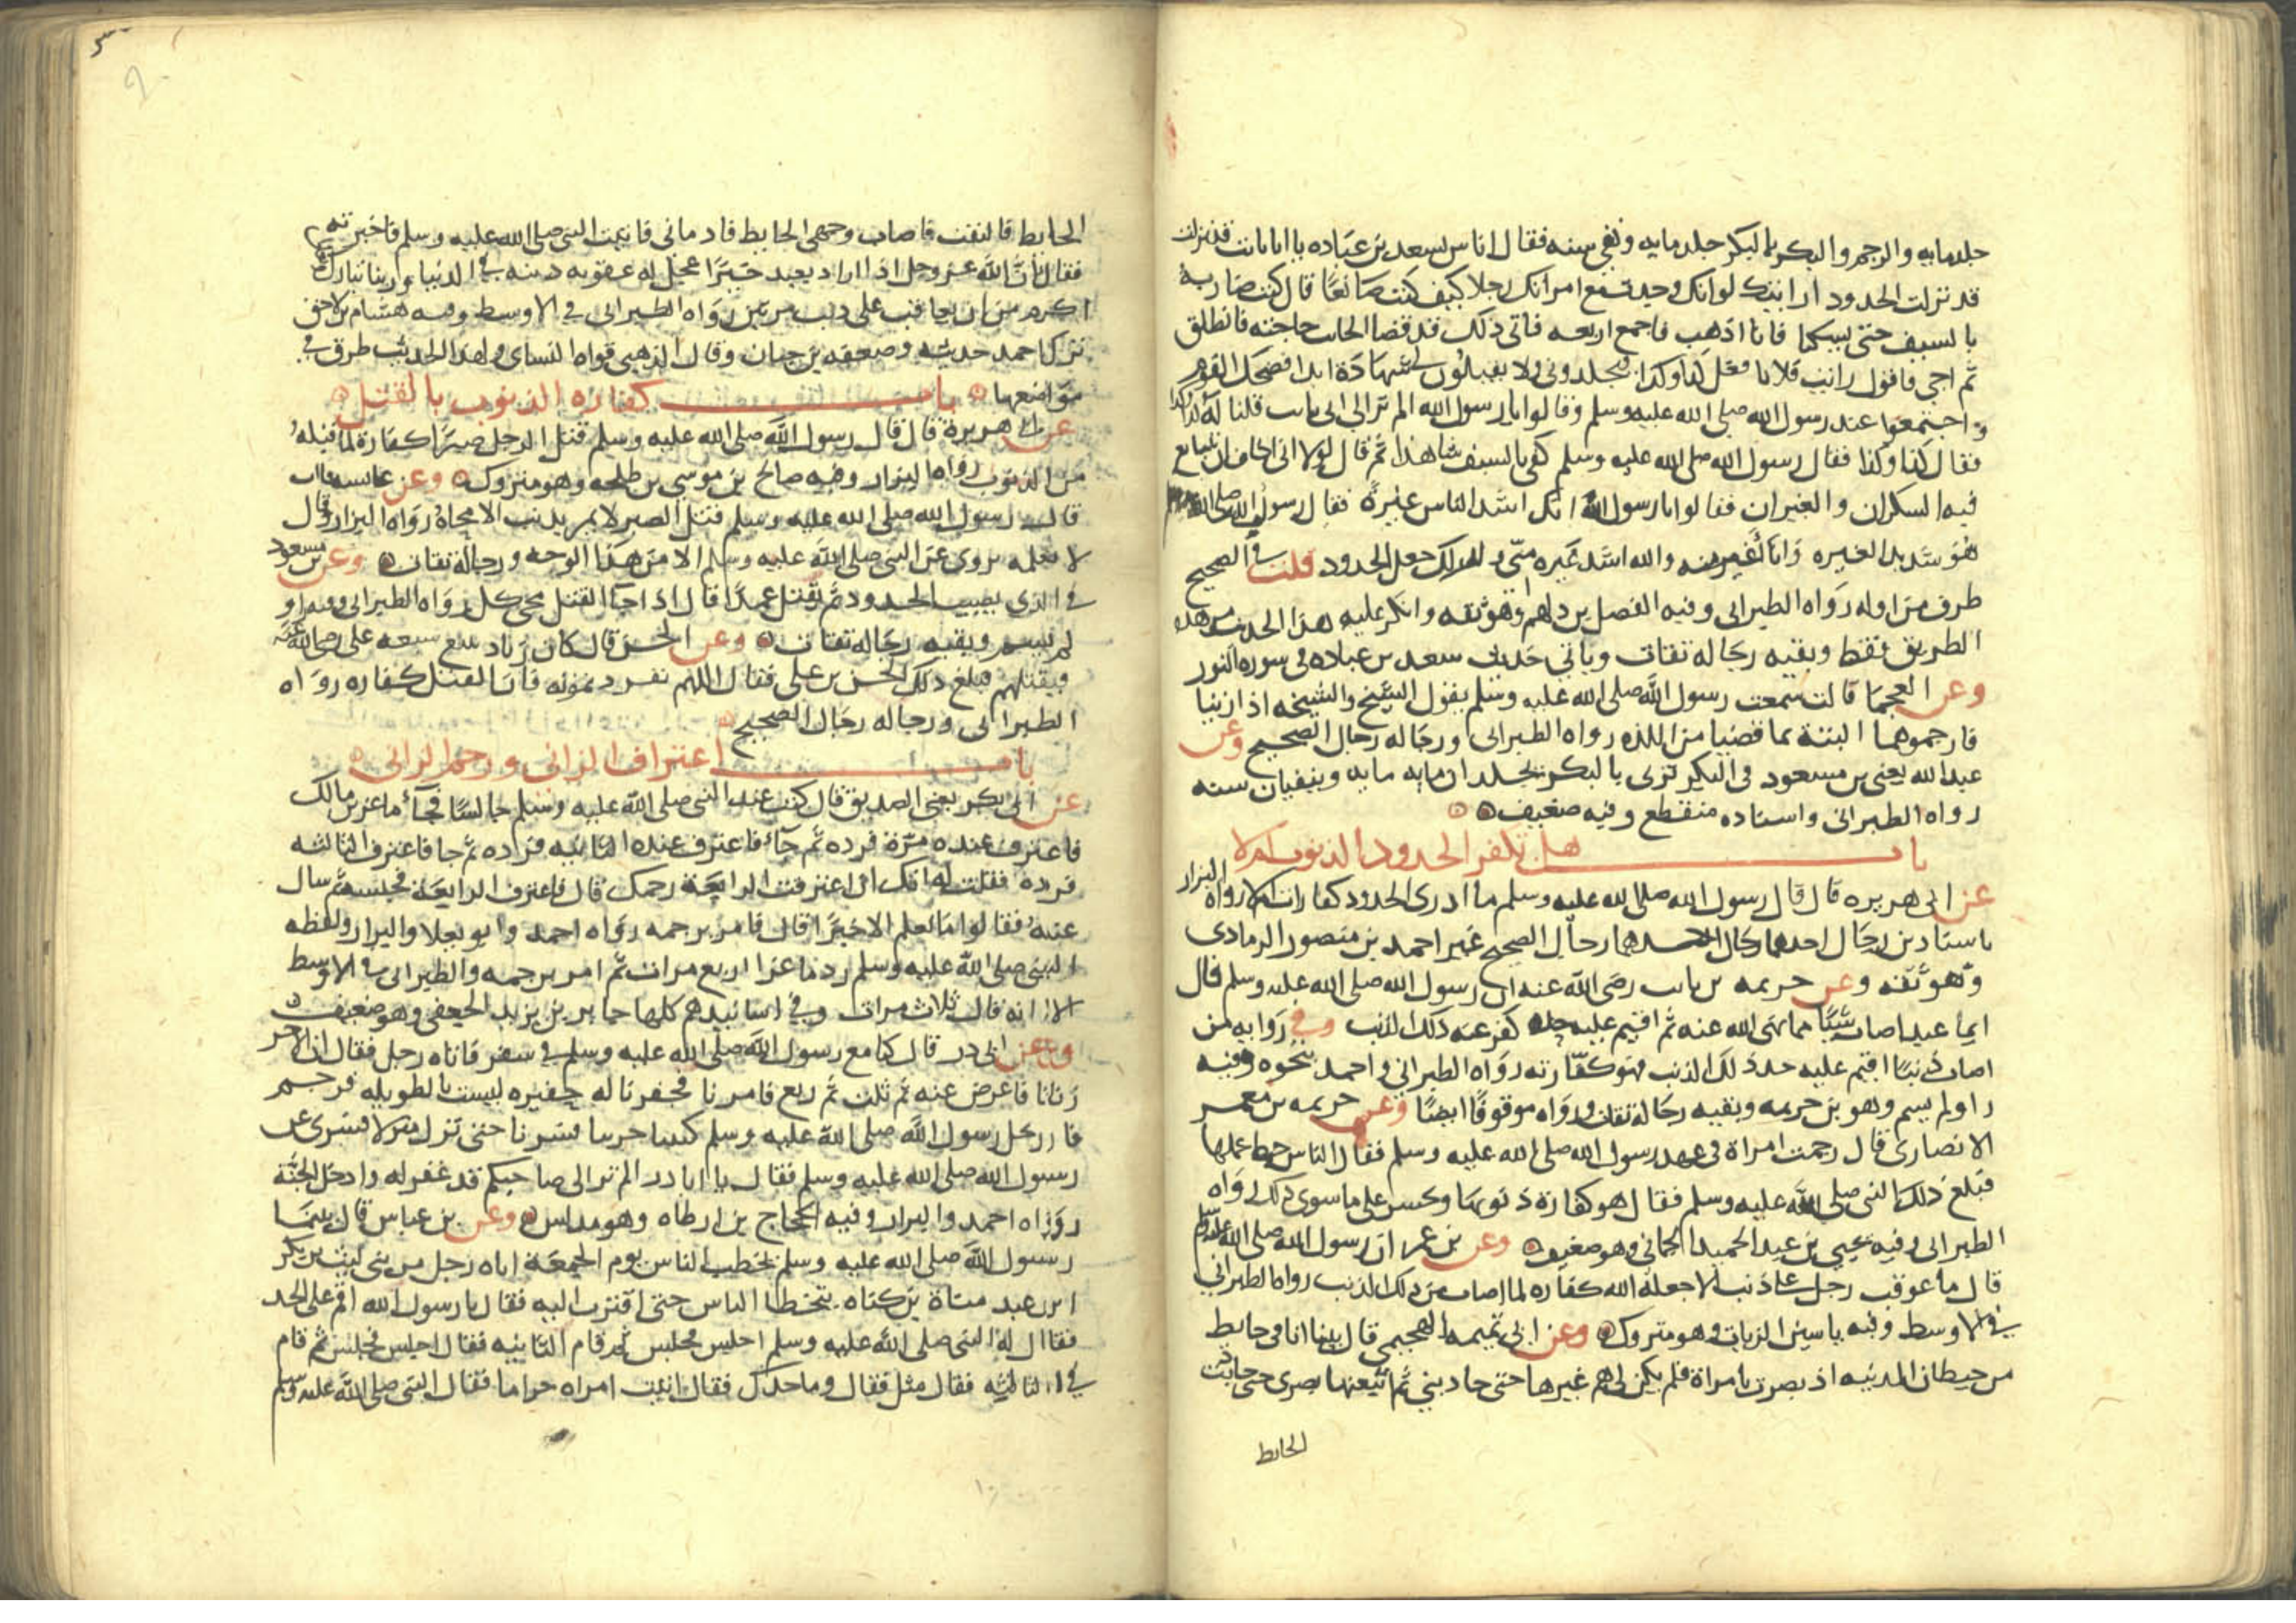 جلد مايه والرجم والبكر بالبكر جلد مايه ونفى سنه فقال اناس لسعد بن عباده يا ابا ثابت قد نزلت
قد نزلت الحدود ارايتك لو انك وجدت مع امراتك رجلا كيف كنت صانعا قال كنت ضاربه
بالسيف حتى يسكتا فانا اذهب فاجمع اربعه فاتى ذلك قد قضا الخاىب حاجته فانطلق
ثم اجى فاقول رايت فلانا فعل كذا وكذا فيجلدونى ولا يقبلون لى شهادة ابدا فضحك القوم
واجتمعوا عند رسول الله صلى الله عليه وسلم وقالوا يا رسول الله الم تر الى ابى ثابت قلنا له كذا وكذا
فقال كذا وكذا فقال رسول الله صلى الله عليه وسلم كفى بالسيف شاهدا ثم قال لولا انى اخاف ان يتتابع
فيه السكران والغيران فقالوا يا رسول الله انك اشد الناس غيرة فقال رسول الله صلى الله
هو شديد الغيره وانا اغير منه والله اشد غيره منى ولذلك جعل الحدود قلت فى الصحيح
طرف من اوله رواه الطبرانى وفيه الفضل بن دلهم وهو ثقه وانكر عليه هذا الحديث من هذه
الطريق فقط وبقيه رجاله ثقات وياتى حديث سعد بن عباده فى سوره النور
وعن العجما قالت سمعت رسول الله صلى الله عليه وسلم يقول الشيخ والشيخه اذا زنيا
فارجموهما البتة بما قضيا من اللذه رواه الطبرانى ورجاله رجال الصحيح وعن
عبد الله يعنى بن مسعود فى البكر تزنى بالبكر يجلدان مايه مايه وينفيان سنه
رواه الطبرانى واسناده منقطع وفيه ضعيف
باب هل تكفر الحدود الذنوب ام لا
عن ابى هريره قال قال رسول الله صلى الله عليه وسلم ما ادرى الحدود كفارات ام لا رواه البزار
باسنادين رجال احدهما رجال الصحيح غير احمد بن منصور الرمادى
وهو ثقه وعن خزيمه بن ثابت رضى الله عنه ان رسول الله صلى الله عليه وسلم قال
ايما عبد اصاب شيئا مما نهى الله عنه ثم اقيم عليه حده كفر عنه ذلك الذنب وفى روايه لمن
اصاب ذنبا اقيم عليه حد ذلك الذنب فهو كفارته رواه الطبرانى واحمد بنحوه وفيه
راو لم يسم وهو بن خزيمه وبقيه رجاله ثقات ورواه موقوفا ايضا وعن خزيمه بن معمر
الانصارى قال رجمت امراة فى عهد رسول الله صلى الله عليه وسلم فقال الناس حبط عملها
فبلغ ذلك النبى صلى الله عليه وسلم فقال هو كفارة ذنوبها وتحشر على ما سوى ذلك رواه
الطبرانى وفيه يحيى بن عبد الحميد الحمانى وهو ضعيف وعن بن عمر ان رسول الله صلى الله عليه وسلم
قال ما عوقب رجل على ذنب الا جعله الله كفاره لما اصاب من ذلك الذنب رواه الطبرانى
فى الاوسط وفيه ياسين الزيات وهو متروك وعن ابى تميمه الهجيمى قال بينا انا فى حايط
من حيطان المدينه اذ بصرت بامراة فلم يكن لى هم غيرها حتى حاذتنى ثم اتبعتها بصرى حتى حاذيت
الحايط
الحايط فالتفت فاصاب وجهى الحايط فادمانى فاتيت النبى صلى الله عليه وسلم فاخبرته
فقال ان الله عز وجل اذا اراد بعبد خيرا عجل له عقوبه ذنبه فى الدنيا وربنا تبارك
اكرم من ان يعاقب على ذنب مرتين رواه الطبرانى فى الاوسط وفيه هشام بن لاحق
ترك احمد حديثه وضعفه بن حبان وقال الذهبى قواه النساى ولهذا الحديث طرق فى
مواضعها باب كفاره الذنوب بالقتل
عن ابى هريرة قال قال رسول الله صلى الله عليه وسلم قتل الرجل صبرا كفارة لما قبله
من الذنوب رواه البزار وفيه صالح بن موسى بن طلحه وهو متروك وعن عايشه قالت
قال رسول الله صلى الله عليه وسلم قتل الصبر لا يمر بذنب الا محاه رواه البزار وقال
لا نعلمه يروى عن النبى صلى الله عليه وسلم الا من هذا الوجه ورجاله ثقات وعن بن مسعود
فى الذى يصيب الحدود ثم يقتل عمدا قال اذا جا القتل محى كل رواه الطبرانى وفيه راو
لم يسم وبقيه رجاله ثقات وعن الحسن قال كان زياد يتتبع شيعه على رضى الله عنه
فيقتلهم فبلغ ذلك الحسن بن على فقال اللهم تفرد بموته فان القتل كفاره رواه
الطبرانى ورجاله رجال الصحيح
باب اعتراف الزانى ورجم الزانى
عن ابى بكر يعنى الصديق قال كنت عند النبى صلى الله عليه وسلم جالسا فجا ماعز بن مالك
فاعترف عنده مرة فرده ثم جا فاعترف عنده الثانيه فرده ثم جا فاعترف الثالثه
فرده فقلت له انك ان اعترفت الرابعة رجمك قال فاعترف الرابعة فحبسه ثم سال
عنه فقالوا ما نعلم الا خيرا قال فامر برجمه رواه احمد وابو يعلا والبزار ولفظه
النبى صلى الله عليه وسلم رد ماعزا اربع مرات ثم امر برجمه والطبرانى فى الاوسط
الا انه قال ثلاث مرات وفى اسانيدهم كلها جابر بن يزيد الجعفى وهو ضعيف
وعن ابى ذر قال كنا مع رسول الله صلى الله عليه وسلم فى سفر فاتاه رجل فقال ان الاخر
زنا فاعرض عنه ثم ثلث ثم ربع فامرنا فحفرنا له حفيره ليست بالطويله فرجم
فارتحل رسول الله صلى الله عليه وسلم كئيبا حزينا فسرنا حتى نزل منزلا فسرى عن
رسول الله صلى الله عليه وسلم فقال يا ابا ذر الم تر الى صاحبكم قد غفر له وادخل الجنة
رواه احمد والبزار وفيه الحجاج بن ارطاه وهو مدلس وعن بن عباس قال بينما
رسول الله صلى الله عليه وسلم يخطب الناس يوم الجمعة اتاه رجل من بنى ليث بن بكر
ابن عبد مناة بن كنانه يتخطا الناس حتى اقترب اليه فقال يا رسول الله اقم على الحد
فقال له النبى صلى الله عليه وسلم اجلس فجلس ثم قام الثانيه فقال اجلس فجلس ثم قام
فى الثالثه فقال مثل فقال وما حدك فقال اتيت امراه حراما فقال النبى صلى الله عليه وسلم